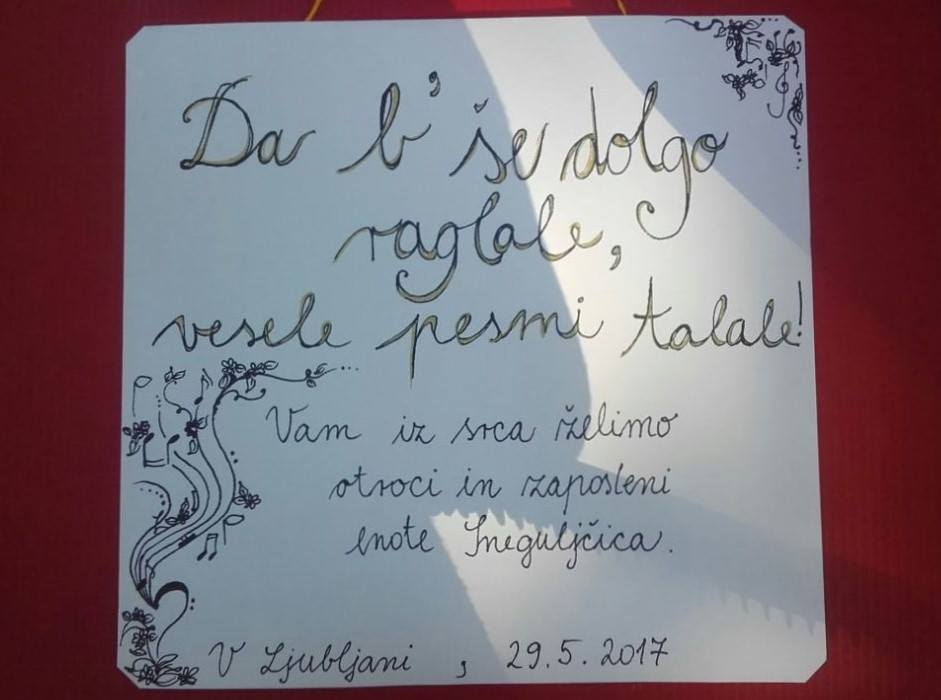 Da b' še dolgo
raglale,
vesele pesmi talale!
Vam iz srca želimo
otroci in zaposleni
enote Sneguljčica.
V Ljubljani, 29.5.2017